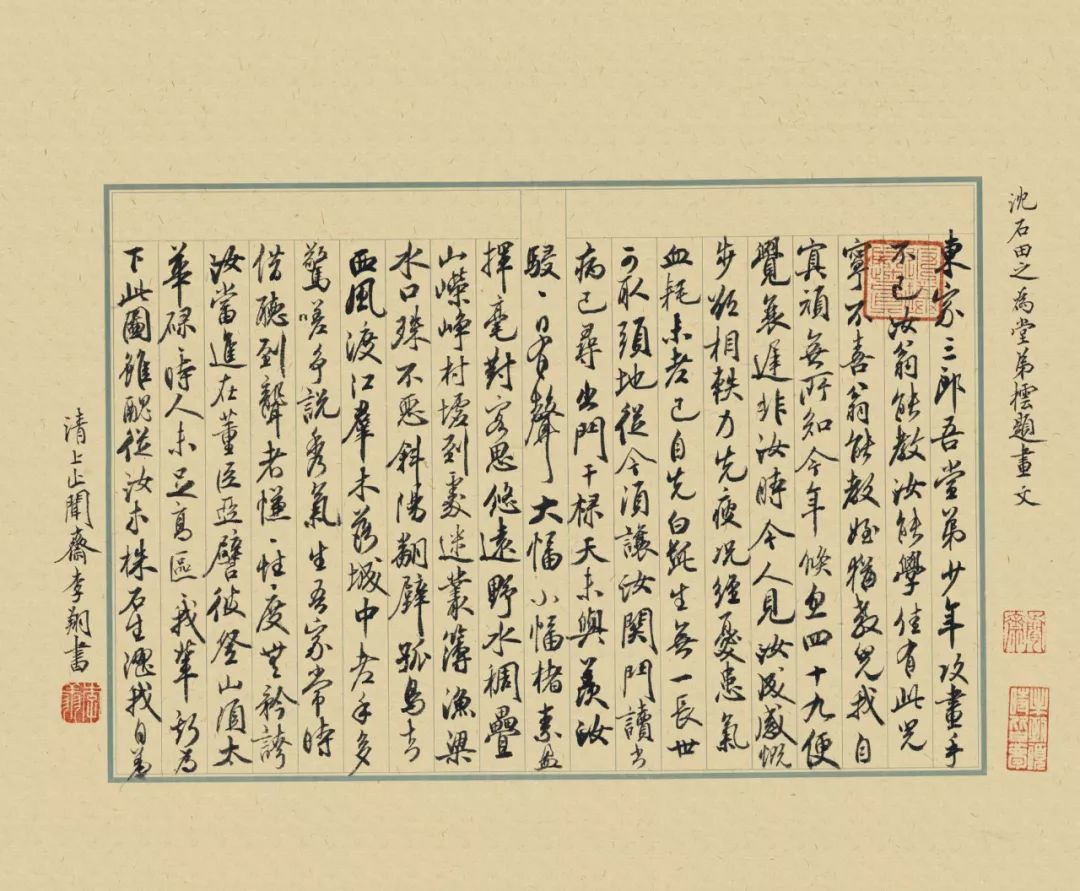 沈石田之為堂弟橒題畫文
東家三郎吾堂弟少年攻畫手
不已汝翁能教汝能學佳有此兒
寧不喜翁能教姪猶教兒我自
寘頑無所知今年倏忽四十九便
覺衰遲非汝時今人見汝成感慨
步趨相軼力先疲況經憂患氣
血耗未老已自先白髭生無一長世
可取頭地從今須讓汝閉門讀書
病已尋出門干祿天未與羨汝
駸〻日有聲大幅小幅楮素盈
揮毫對客思悠遠野水稠疊
山嶸崢村墟到處迷叢薄漁梁
水口殊不惡斜陽翻壁孤鳥去
西風渡江群木落城中老手多
驚嗟爭說秀氣生吾家常時
借聽到聾者慊〻性度無矜誇
汝當進在董臣亞譬彼登山須太
華碌〻時人未足高區〻我輩
下此圖雖醜從汝木株石生澀我自
清上止聞齋李翔書